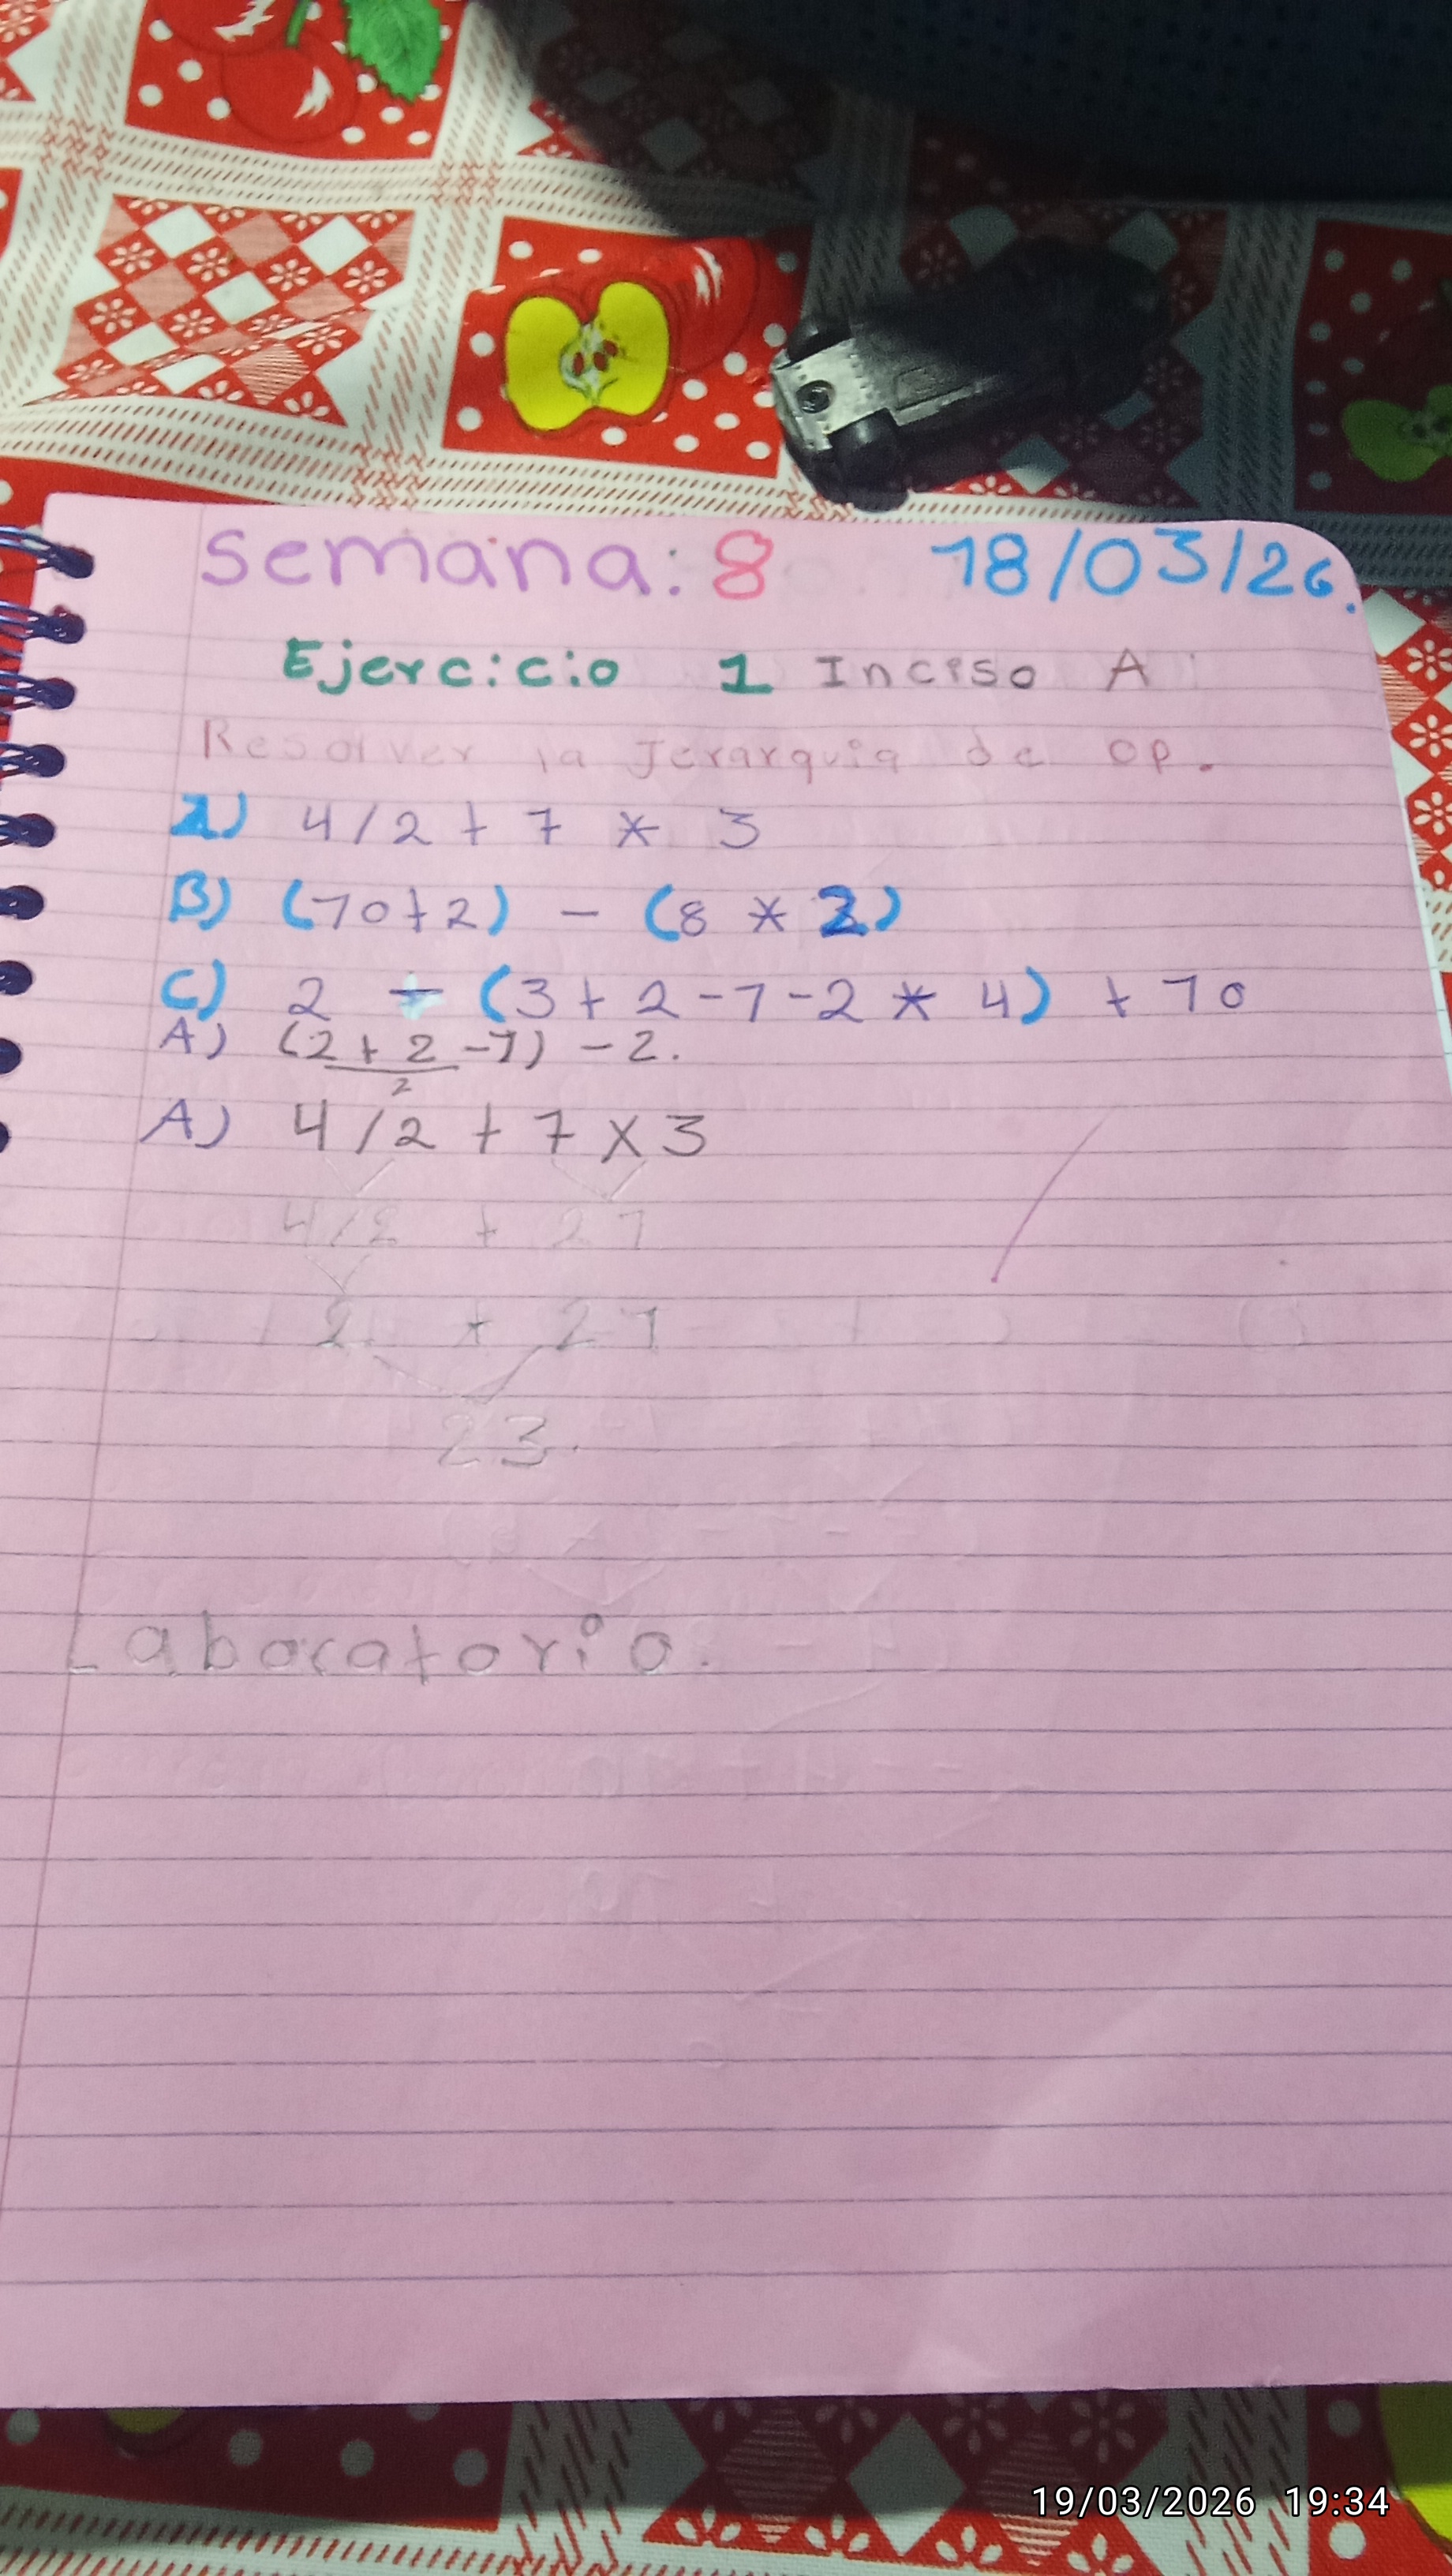 Semana: 8 18/03/26.
Ejercicio 1 Inciso A
Resolver la Jerarquia de OP.
A) 4/2 + 7 * 3
B) (10+2) - (8 * 2)
C) 2 + (3 + 2 - 1 - 2 * 4) + 10
A) (2 + 2 - 1) - 2.
2
A) 4/2 + 7 X 3
4/2 + 21
2 + 21
23.
Laboratorio.
19/03/2026 19:34